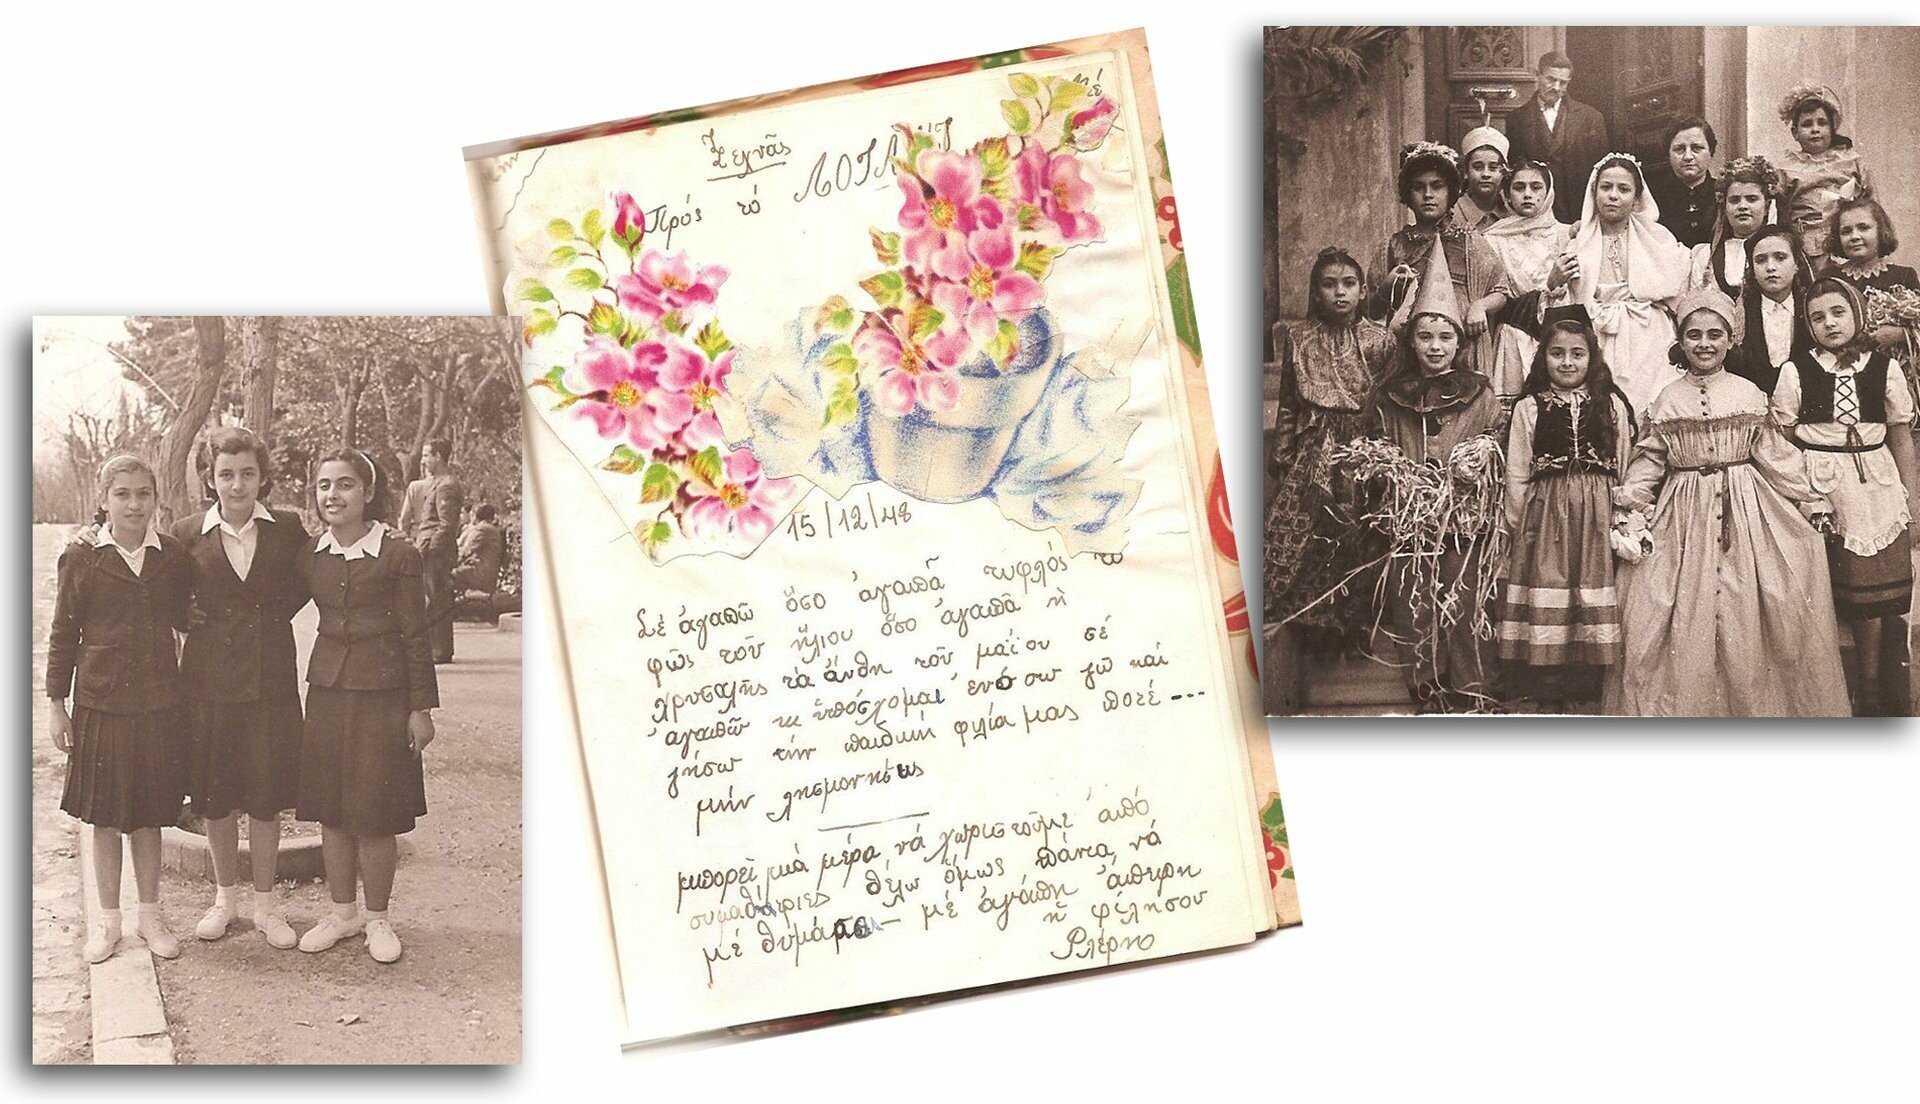 μέ
Ξεχνᾶς
Πρός τό
15/12/48
Σέ ἀγαπῶ ὅσο ἀγαπᾶ τυφλός τό
φῶς τοῦ ἥλιου ὅσο ἀγαπᾶ ἡ
χρυσαλής τά ἄνθη τοῦ μαΐου σέ
ἀγαπῶ κι ὑπόσχομαι ἐνόσω ζῶ καί
ζήσω τήν παιδική φιλία μας ποτέ ---
μήν λησμονήσεις
μπορεῖ μιά μέρα νά χωριστοῦμε ἀπό
συμαθήτριες θέλω ὅμως πάντα νά
μέ θυμᾶσαι – μέ ἀγάπη ἄπειρη
ἡ φίλη σου